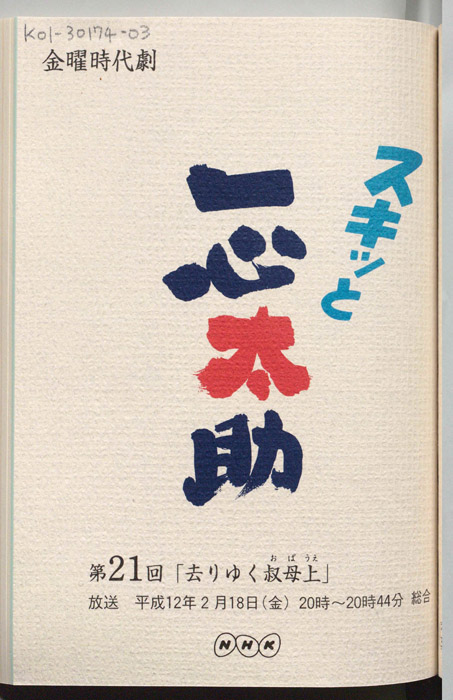 K01-30174-03
金曜時代劇
スキッと
一心太助
第21回「去りゆく叔母上」
おばうえ
放送 平成12年2月18日(金) 20時～20時44分 総合
NHK